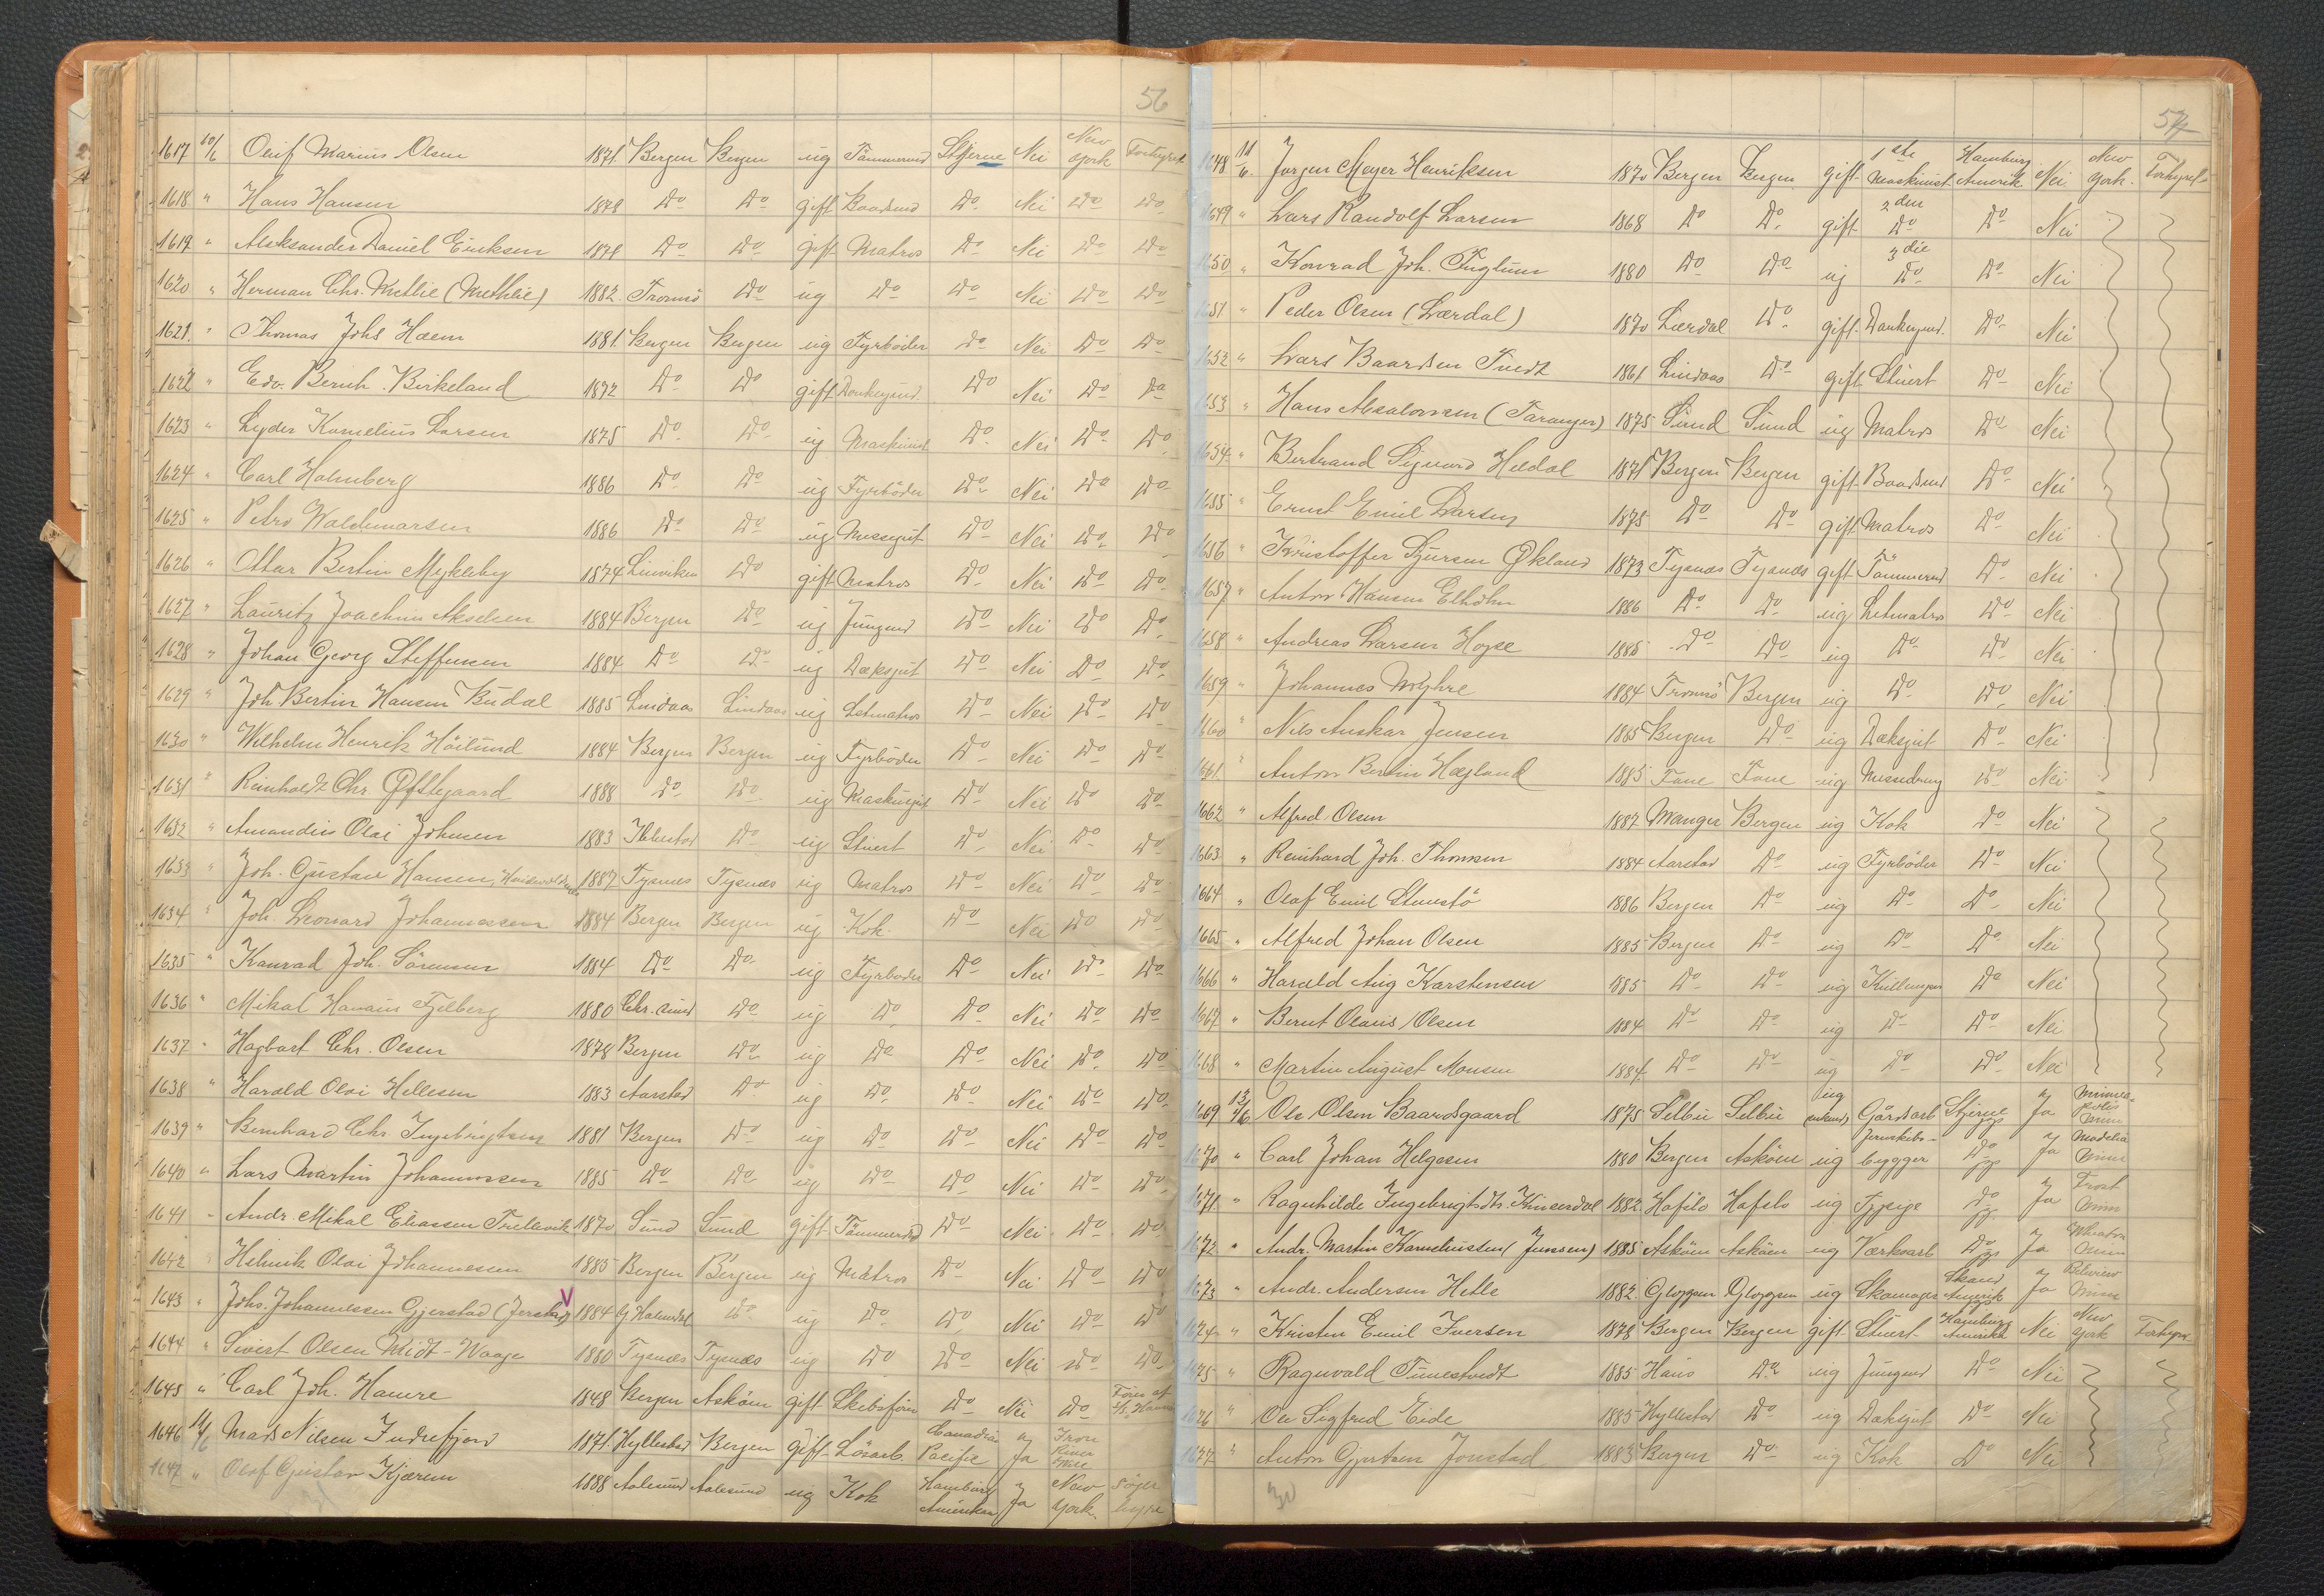 56
1617 10/6 Oluf Marius Olsen 1871. Bergen Bergen ug Tömmermd Stjerne Nei New York Forhyret
1618 " Hans Hansen 1878 Do Do gift Baadsmd Do Nei Do Do
1619 " Aleksander Daniel Eriksen 1878 Do Do gift Matros Do Nei Do Do
1620 " Herman Chr. Methie (Methlie) 1882. Tromsö Do ug Do Do Nei Do Do
1621. " Thomas Johs Haem 1881. Bergen Bergen ug Fyrböder Do Nei Do Do
1622 " Edv. Bernh. Birkeland 1872 Do Do gift Donkeymd. Do Nei Do Do
1623 " Lyder Kornelius Larsen 1875 Do Do ug Maskinist Do Nei Do Do
1624 " Carl Holmberg 1886 Do Do ug Fyrböder Do Nei Do Do
1625 " Petro Waldemarsen 1886 Do Do ug Messegut Do Nei Do Do
1626 " Ottar Bertin Mykleby 1874 Do gift Matros Do Nei Do Do
1627 " Lauritz Joachim Akselsen 1884 Bergen Do ug Jungmd Do Nei Do Do
1628 " Johan Georg Steffensen 1884 Do Do ug Dæksgut Do Nei Do Do
1629 " Joh Bertin Hansen Budal 1885 Lindaas Lindaas ug Letmatros Do Nei Do Do
1630 " Wilhelm Henrik Höilund 1884 Bergen Bergen ug Fyrböder Do Nei Do Do
1631 " Reinholdt Chr Øftegaard 1888 Do Do ug Do Nei Do Do
1632 " Amandus Olai Johnsen 1883 Do ug Stuert Do Nei Do Do
1633 " Joh. Gustav Hansen, 1887 Tysnes Tysnæs ug Matros Do Nei Do Do
1634 " Joh. Leonard Johannesen 1884 Bergen Bergen ug Kok. Do Nei Do Do
1635 " Konrad Joh. Sörensen 1884 Do Do ug Fyrböder Do Nei Do Do
1636 " Mikal Fjelberg 1880 Chr.sund Do ug Do Do Nei Do Do
1637 " Hagbart Chr. Olsen 1878 Bergen Do ug Do Do Nei Do Do
1638 " Harald Olai Hellesen 1883 Aarstad Do ug Do Do Nei Do Do
1639 " Bernhard Chr. Ingebrigtsen 1881 Bergen Do ug Do Do Nei Do Do
1640 " Lars Martin Johannessen 1885 Do Do ug Do Do Nei Do Do
1641 " Andr. Mikal Eliassen Trellevik 1870 Sund Sund gift Tömmermd Do Nei Do Do
1642 " Helmik Olai Johannesen 1885 Bergen Bergen ug Matros Do Nei Do Do
1643 " Johs. Johannessen Gjerstad (Jerstad) V 1884 Do ug Do Do Nei Do Do
1644 " Sivert Olsen Midt-Waage 1880 Tysnæs Tysnæs ug Do Do Nei Do Do
1645 " Carl Joh. Hamre 1848 Bergen Asköen gift Skibsförer Do Nei Do Förer af
1646 11/6 Mads Nilsen Indrefjord 1871. Hyllestad Bergen gift Lösarb. Canadian Pacific Ja Iron River
1647 " Olaf Gustav Kjærem 1888 Aalesund Aalesund ug Kok Hamburg Amerikan Ja New York. Söger hyre
57
1648 11/6. Jørgen Meyer Henriksen 1870 Bergen Bergen gift 1ste Maskinist Hamburg Amerik. Nei New York. Forhyret
1649 " Lars Randolf Larsen 1868 Do Do gift 2den Do Do Nei
1650 " Konrad Joh. Fuglum 1880 Do Do ug 3die Do Do Nei
1651 " Peder Olsen (Lærdal) 1870 Lærdal Do gift Donkeymd. Do Nei
1652 " Lars Baardsen Tvedt 1861 Lindaas Do gift Stuert Do Nei
1653 " Hans Absalonsen (Taranger) 1875 Sund Sund ug Matros Do Nei
1654 " Bertrand Sigurd Heldal 1871 Bergen Bergen gift Baadsmd Do Nei
1655 " Ernst Emil Larsen 1875 Do Do gift Matros Do Nei
1656 " Kristoffer Sjursen Økland 1873 Tysnæs Tysnæs gift Tömmermd Do Nei
1657 " Anton Hansen Elholm 1886 Do Do ug Letmatros Do Nei
1658 " Andreas Larsen 1885 Do Do ug Do Do Nei
1659 " Johannes Myhre 1884 Tromsö Bergen ug Do Do Nei
1660 " Nils Anskar Jensen 1885 Bergen Do ug Dæksgut Do Nei
1661. " Anton Bertin Hægland 1885 Fane Fane ug Do Nei
1662 " Alfred Olsen 1887 Manger Bergen ug Kok Do Nei
1663 " Reinhard Joh. Thomsen 1884 Aarstad Do ug Fyrböder Do Nei
1664 " Olaf Emil Stenstö 1886 Bergen Do ug Do Do Nei
1665 " Alfred Johan Olsen 1885 Bergen Do ug Do Do Nei
1666 " Harald Aug Karstensen 1885 Do Do ug Kullemper Do Nei
1667 " Bernt Olaus Olsen 1884 Do Do ug Do Do Nei
1668 " Martin August Monsen 1884. Do Do ug Do Do Nei
1669 13/6 Ole Olsen Baardsgaard 1875 Selbu Selbu ug (enkem) Gårdsarb Stjerne Ja Minneapolis Minn
1670 " Carl Johan Helgesen 1880 Bergen Asköen ug Jernskibsbygger Do Ja Madelia Minn
1671. " Ragnhilde Ingebrigtsdtr. Kinserdal 1882 Hafslo Hafslo ug Tjpige Do Ja Frost Minn
1672 " Andr. Martin Kornelliussen (Jenssen) 1885 Asköen Asköen ug Værksarb Do Ja Wheaton Minn
1673 " Andr. Andersen Hetle 1882 Gloppen Gloppen ug Skomager Skand Amerik Ja Belview Minn
1674 " Kristen Emil Iversen 1878 Bergen Bergen gift Stuert Hamburg Amerik Nei New York Forhyret
1675 " Ragnvald Tunestvedt 1885 Haus Do ug Jungmd Do Nei
1676 " Ole Sigfred Eide 1885 Hyllestad Do ug Dæksgut Do Nei
1677 " Anton Gjertsen Jonstad 1883 Bergen Do ug Kok Do Nei
30